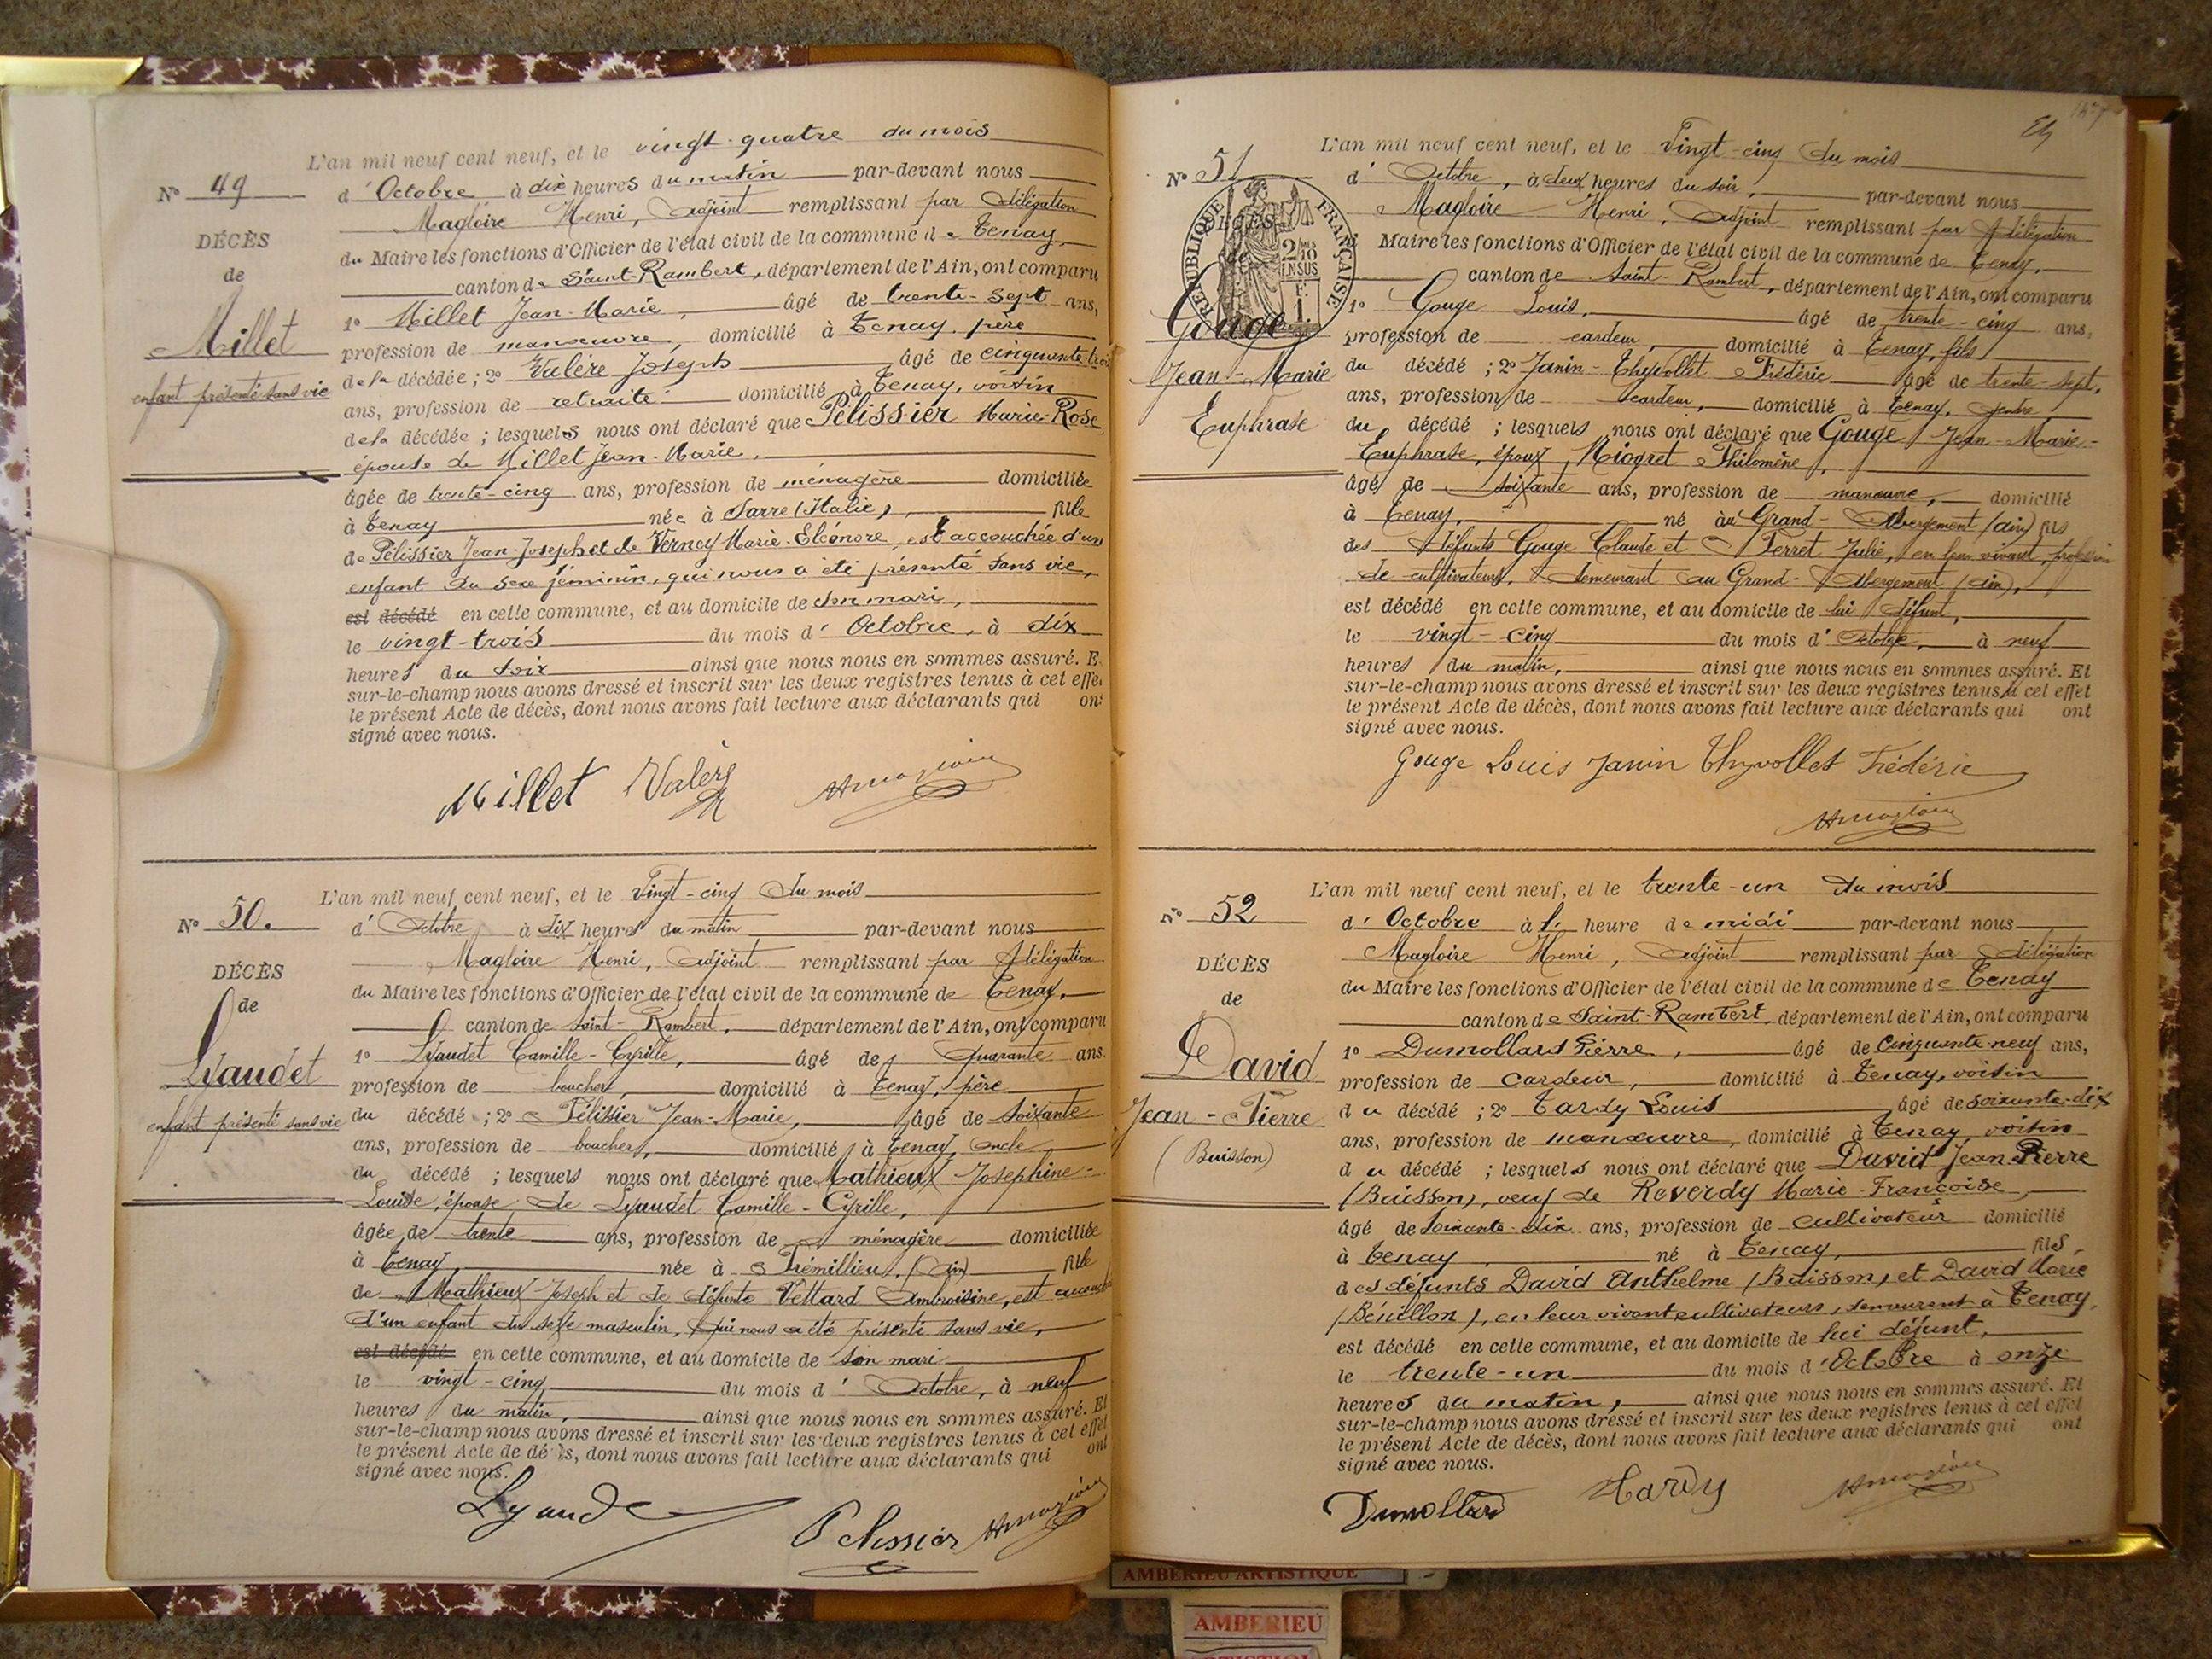 L'an mil neuf cent neuf, et le vingt-quatre du mois
N° 49
d'Octobre à dix heures du matin par-devant nous
Magloire Henri, adjoint remplissant par délégation
DÉCÈS
du Maire les fonctions d'Officier de l'état civil de la commune de Tenay,
de
canton de Saint-Rambert, département de l'Ain, ont comparu
1° Millet Jean-Marie, âgé de trente-sept ans,
Millet
profession de manœuvre, domicilié à Tenay, père
enfant présenté sans vie
de la décédée; 2° Valère Joseph âgé de cinquante-trois
ans, profession de retraité domicilié à Tenay, voisin
de la décédée; lesquels nous ont déclaré que Pélissier Marie-Rose,
épouse de Millet Jean-Marie,
âgée de trente-cinq ans, profession de ménagère domiciliée
à Tenay née à Sarre (Italie), fille
de Pélissier Jean-Joseph et de Verney Marie-Eléonore, est accouchée d'un
enfant du sexe féminin, qui nous a été présenté sans vie,
est décédé en cette commune, et au domicile de son mari,
le vingt-trois du mois d'Octobre, à dix
heures du soir ainsi que nous nous en sommes assuré. E
sur-le-champ nous avons dressé et inscrit sur les deux registres tenus à cet effe
le présent Acte de décès, dont nous avons fait lecture aux déclarants qui ont
signé avec nous.
Millet Valère HMagloire
L'an mil neuf cent neuf, et le Vingt-cinq du mois
N° 50.
d'Octobre à dix heures du matin par-devant nous
Magloire Henri, adjoint remplissant par délégation
DÉCÈS
du Maire les fonctions d'Officier de l'état civil de la commune de Tenay,
de
canton de Saint-Rambert, département de l'Ain, ont comparu
1° Lyaudet Camille-Cyrille, âgé de quarante ans.
Lyaudet
profession de boucher, domicilié à Tenay, père
enfant présenté sans vie
du décédé; 2° Pélissier Jean-Marie, âgé de soixante
ans, profession de boucher, domicilié à Tenay, oncle
du décédé; lesquels nous ont déclaré que Mathieux Josephine-
Louise, épouse de Lyaudet Camille-Cyrille,
âgée de trente ans, profession de ménagère domiciliée
à Tenay, née à Prémillieu, (Ain) fille
de Mathieux Joseph et de défunte Vettard Ambroisine, est accouchée
d'un enfant du sexe masculin, qui nous a été présenté sans vie,
est décédé en cette commune, et au domicile de son mari
le vingt-cinq du mois d'Octobre, à neuf
heures du matin, ainsi que nous nous en sommes assuré. Et
sur-le-champ nous avons dressé et inscrit sur les deux registres tenus à cet effet
le présent Acte de décès, dont nous avons fait lecture aux déclarants qui ont
signé avec nous.
Lyaudet Pelissier HMagloire
L'an mil neuf cent neuf, et le Vingt-cinq du mois
N° 51
d'Octobre, à deux heures du soir, par-devant nous
Magloire Henri, adjoint remplissant par délégation
DÉCÈS
RÉPUBLIQUE FRANÇAISE
2/10 EN SUS
du Maire les fonctions d'Officier de l'état civil de la commune de Tenay,
de
canton de Saint-Rambert, département de l'Ain, ont comparu
1° Gouge Louis, âgé de trente-cinq ans,
Gouge
profession de cardeur, domicilié à Tenay, fils
Jean-Marie
du décédé; 2° Janin-Thyvollet Frédéric âgé de trente-sept,
ans, profession de cardeur, domicilié à Tenay, gendre
Euphrase
du décédé; lesquels nous ont déclaré que Gouge Jean-Marie-
Euphrase, époux Miogret Philomène,
âgé de soixante ans, profession de manœuvre, domicilié
à Tenay, né au Grand-Abergement (Ain) fils
des défunts Gouge Claude et Ferret Julie, en leur vivant, profession
de cultivateurs, demeurant au Grand-Abergement (Ain),
est décédé en cette commune, et au domicile de lui défunt,
le vingt-cinq du mois d'Octobre, à neuf
heures du matin, ainsi que nous nous en sommes assuré. Et
sur-le-champ nous avons dressé et inscrit sur les deux registres tenus à cet effet
le présent Acte de décès, dont nous avons fait lecture aux déclarants qui ont
signé avec nous.
Gouge Louis Janin Thyvollet Frédéric
HMagloire
L'an mil neuf cent neuf, et le trente-un du mois
N° 52
d'Octobre à l' heure de midi par-devant nous
Magloire Henri, adjoint remplissant par délégation
DÉCÈS
du Maire les fonctions d'Officier de l'état civil de la commune de Tenay
de
canton de Saint-Rambert, département de l'Ain, ont comparu
1° Dumollard Pierre, âgé de cinquante-neuf ans,
David
profession de cardeur, domicilié à Tenay, voisin
Jean-Pierre
du décédé; 2° Tardy Louis âgé de soixante-dix
ans, profession de manœuvre, domicilié à Tenay voisin
(Buisson)
du décédé; lesquels nous ont déclaré que David Jean-Pierre
(Buisson), veuf de Reverdy Marie-Françoise,
âgé de soixante-dix ans, profession de cultivateur domicilié
à Tenay, né à Tenay, fils,
des défunts David Anthelme (Buisson) et David Marie
(Bénillon), en leur vivant cultivateurs, demeurant à Tenay,
est décédé en cette commune, et au domicile de lui défunt,
le trente-un du mois d'Octobre à onze
heures du matin, ainsi que nous nous en sommes assuré. Et
sur-le-champ nous avons dressé et inscrit sur les deux registres tenus à cet effet
le présent Acte de décès, dont nous avons fait lecture aux déclarants qui ont
signé avec nous.
Dumollard Tardy HMagloire
AMBERIEU ARTISTIQUE
AMBERIEU